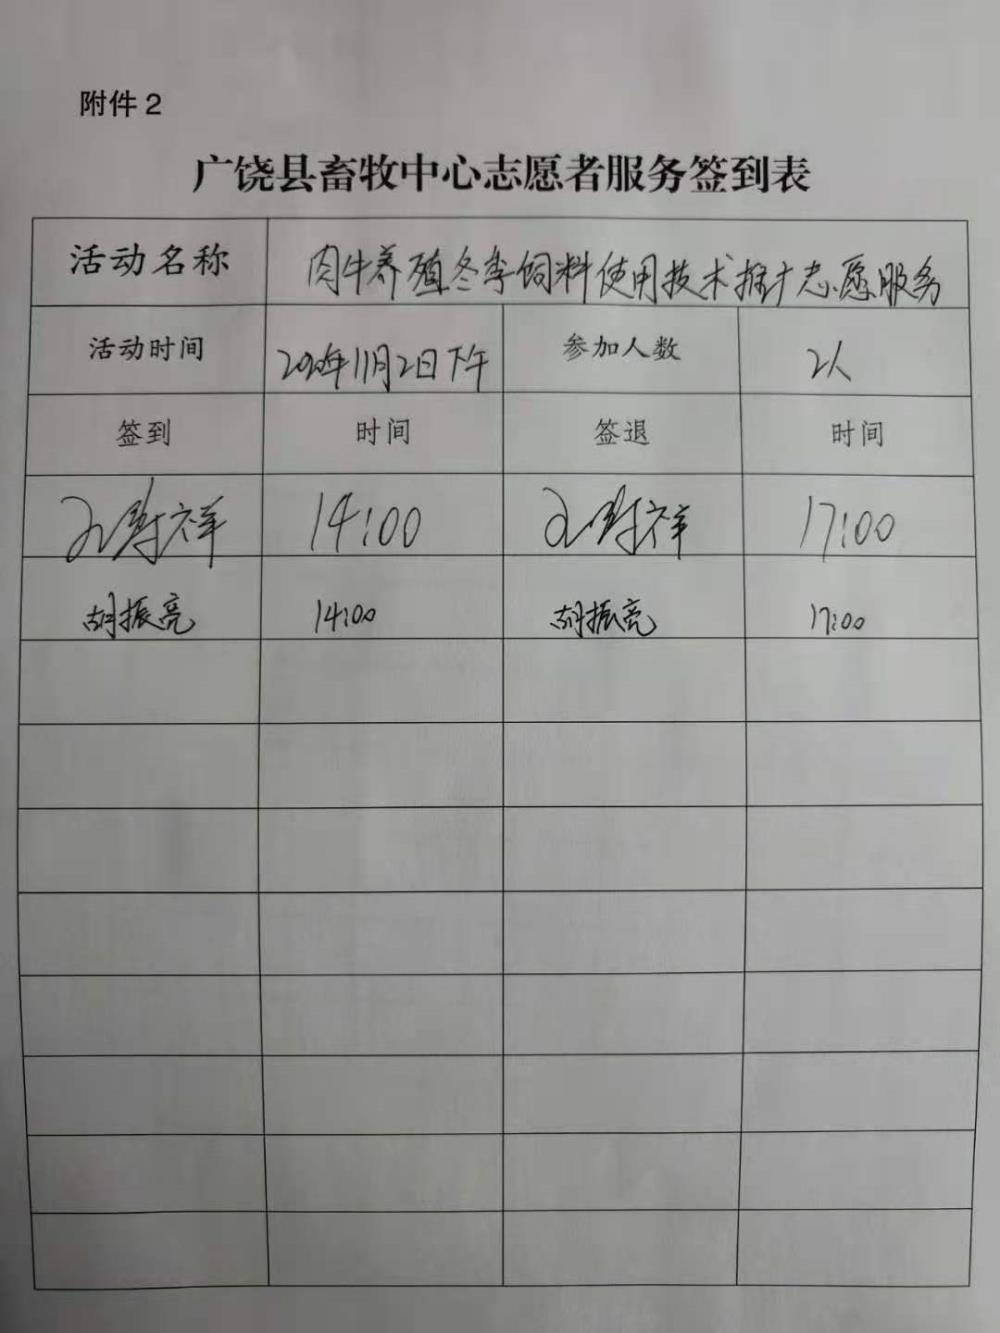 附件2
广饶县畜牧中心志愿者服务签到表
活动名称 肉牛养殖冬季饲料使用技术推广志愿服务
活动时间 2020年11月2日下午 参加人数 2人
签到 时间 签退 时间
寿祥 14:00 寿祥 17:00
胡振亮 14:00 胡振亮 17:00